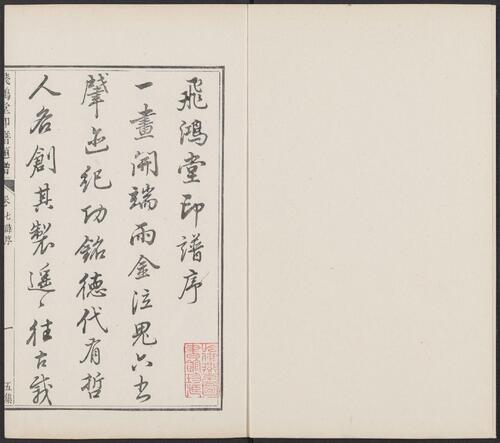 飛鴻堂印譜序
一畫開端雨金泣鬼六書
肇迹紀功銘德代有哲
人各創其製遥〻往古
飛鴻堂印譜
卷七
序
一
五集